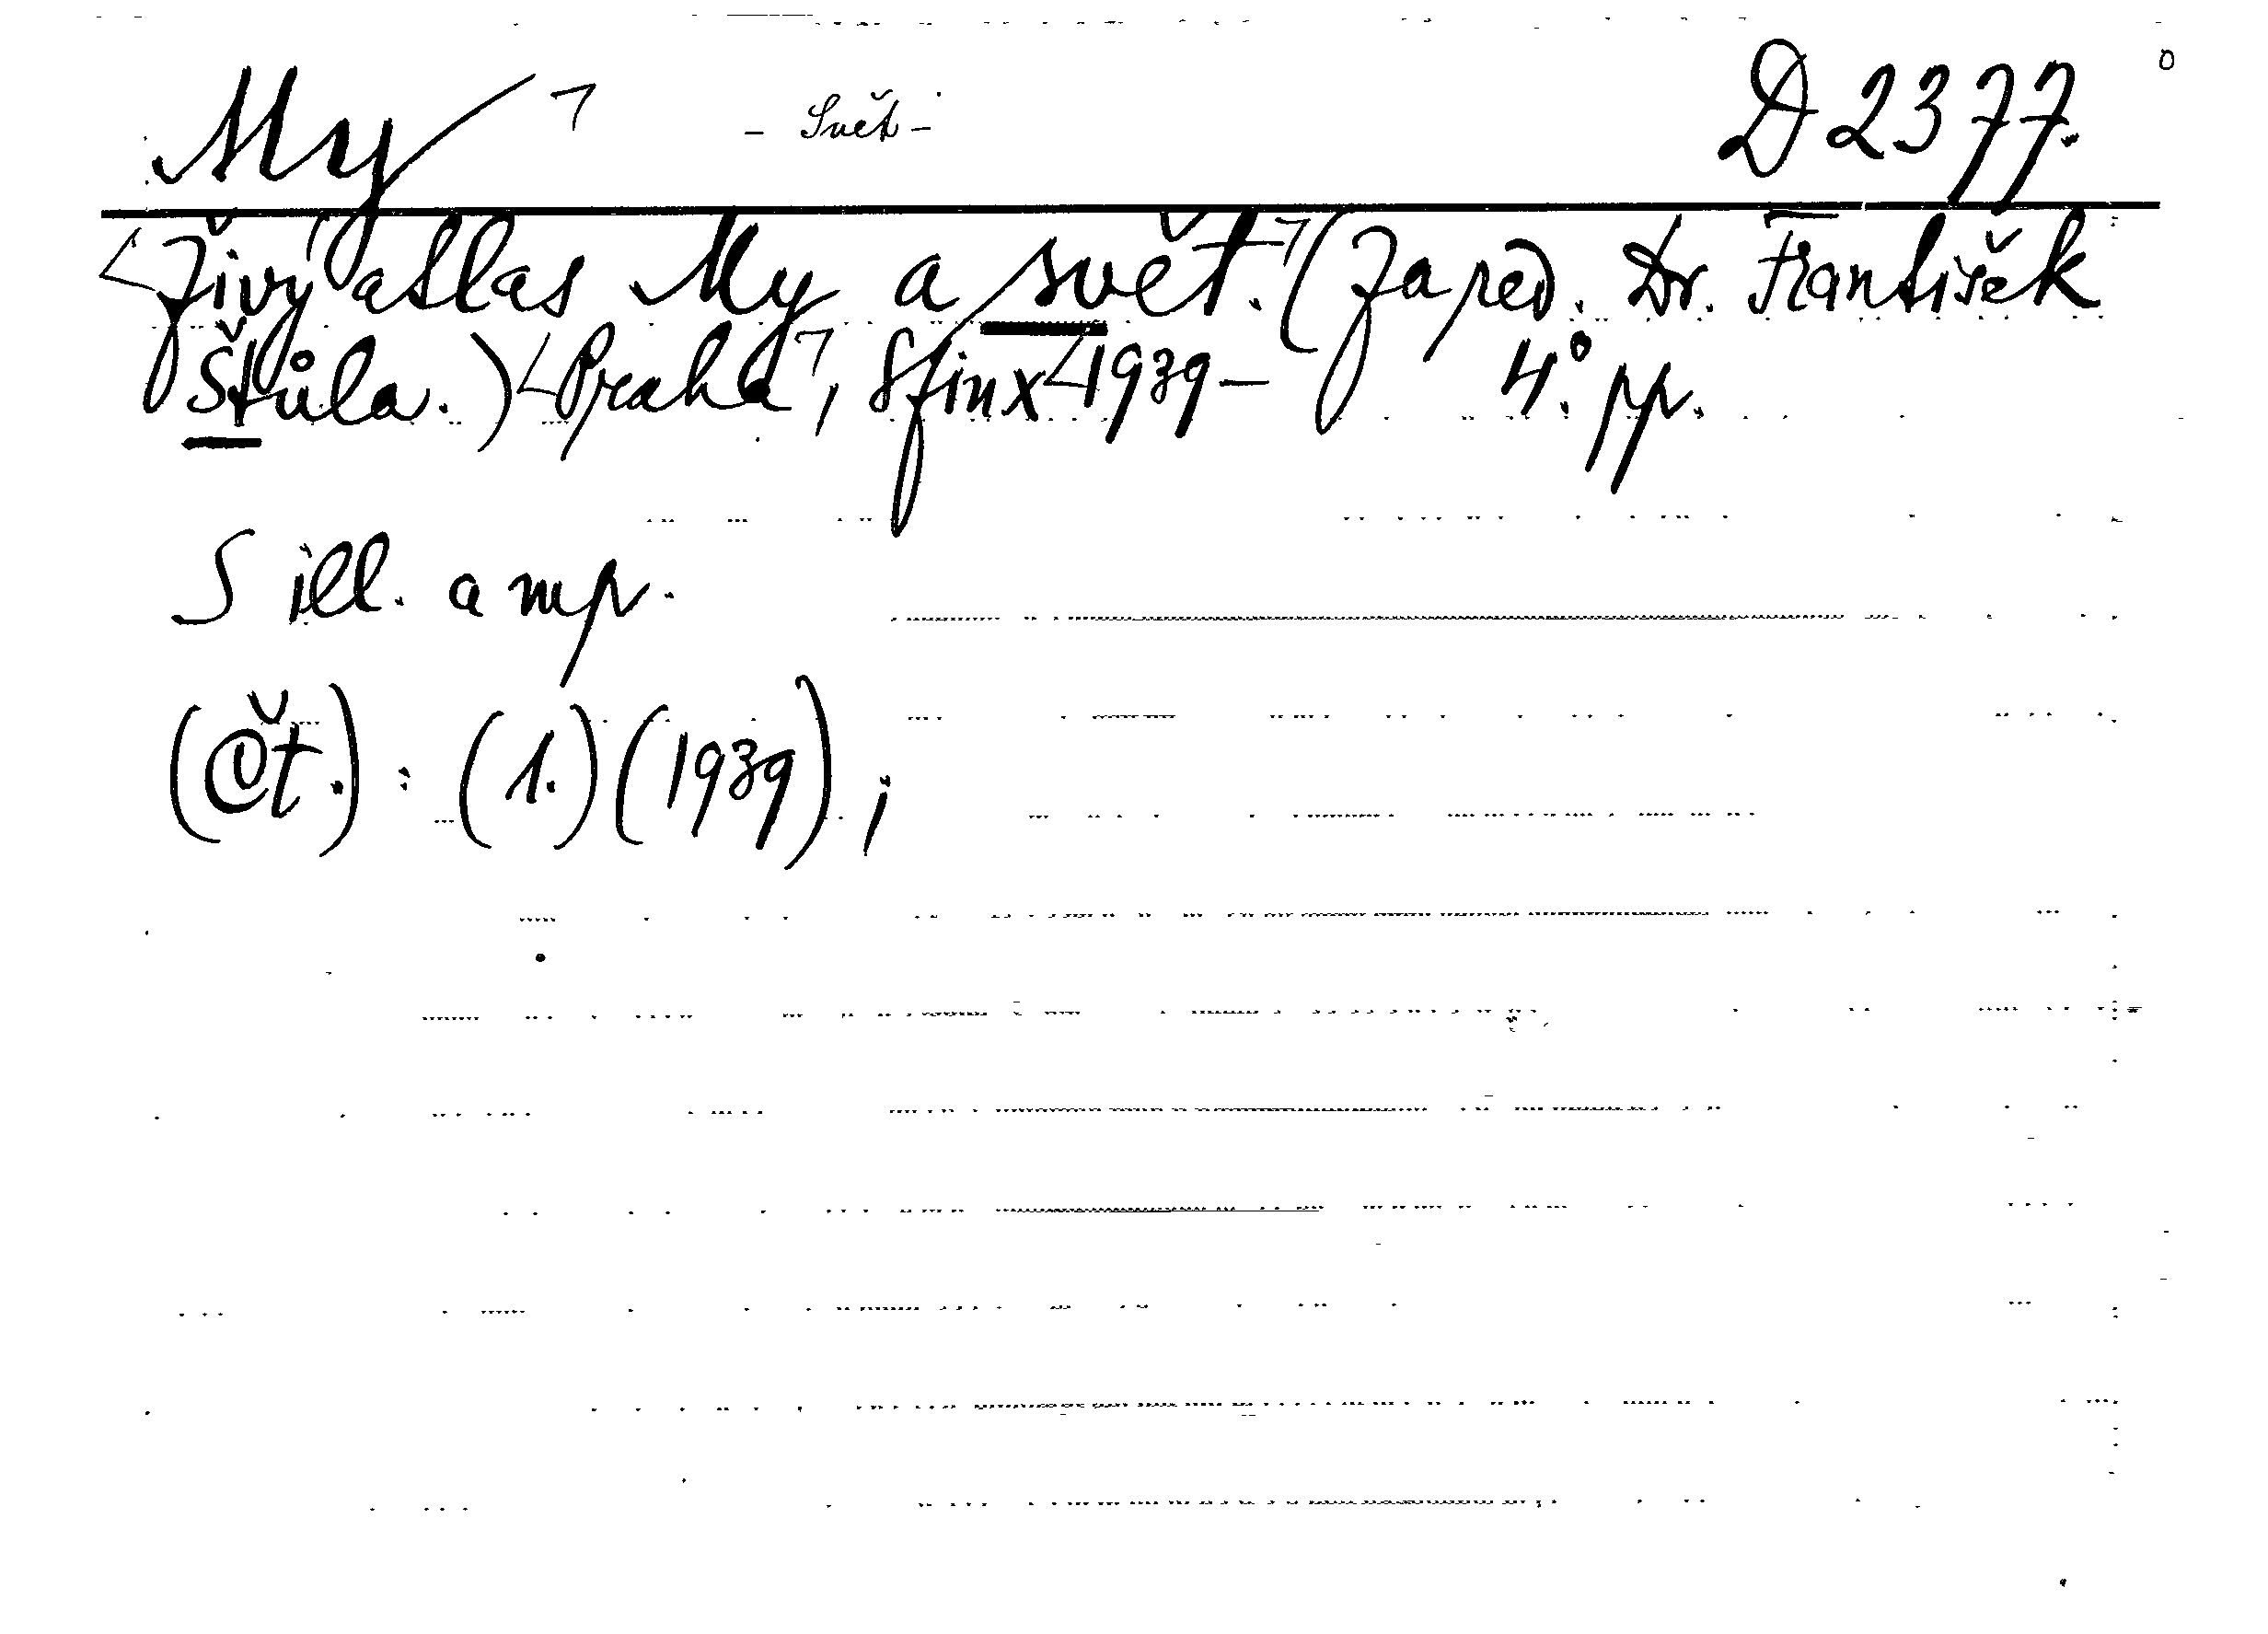 My - Svět - D 2377.
Živý atlas My a svět. (Za red. Dr. František
Štůla.) Praha, Sfinx 1939 - 4°. pp.
S ill. a mp.
(Čt.) : (1.) (1939) ;